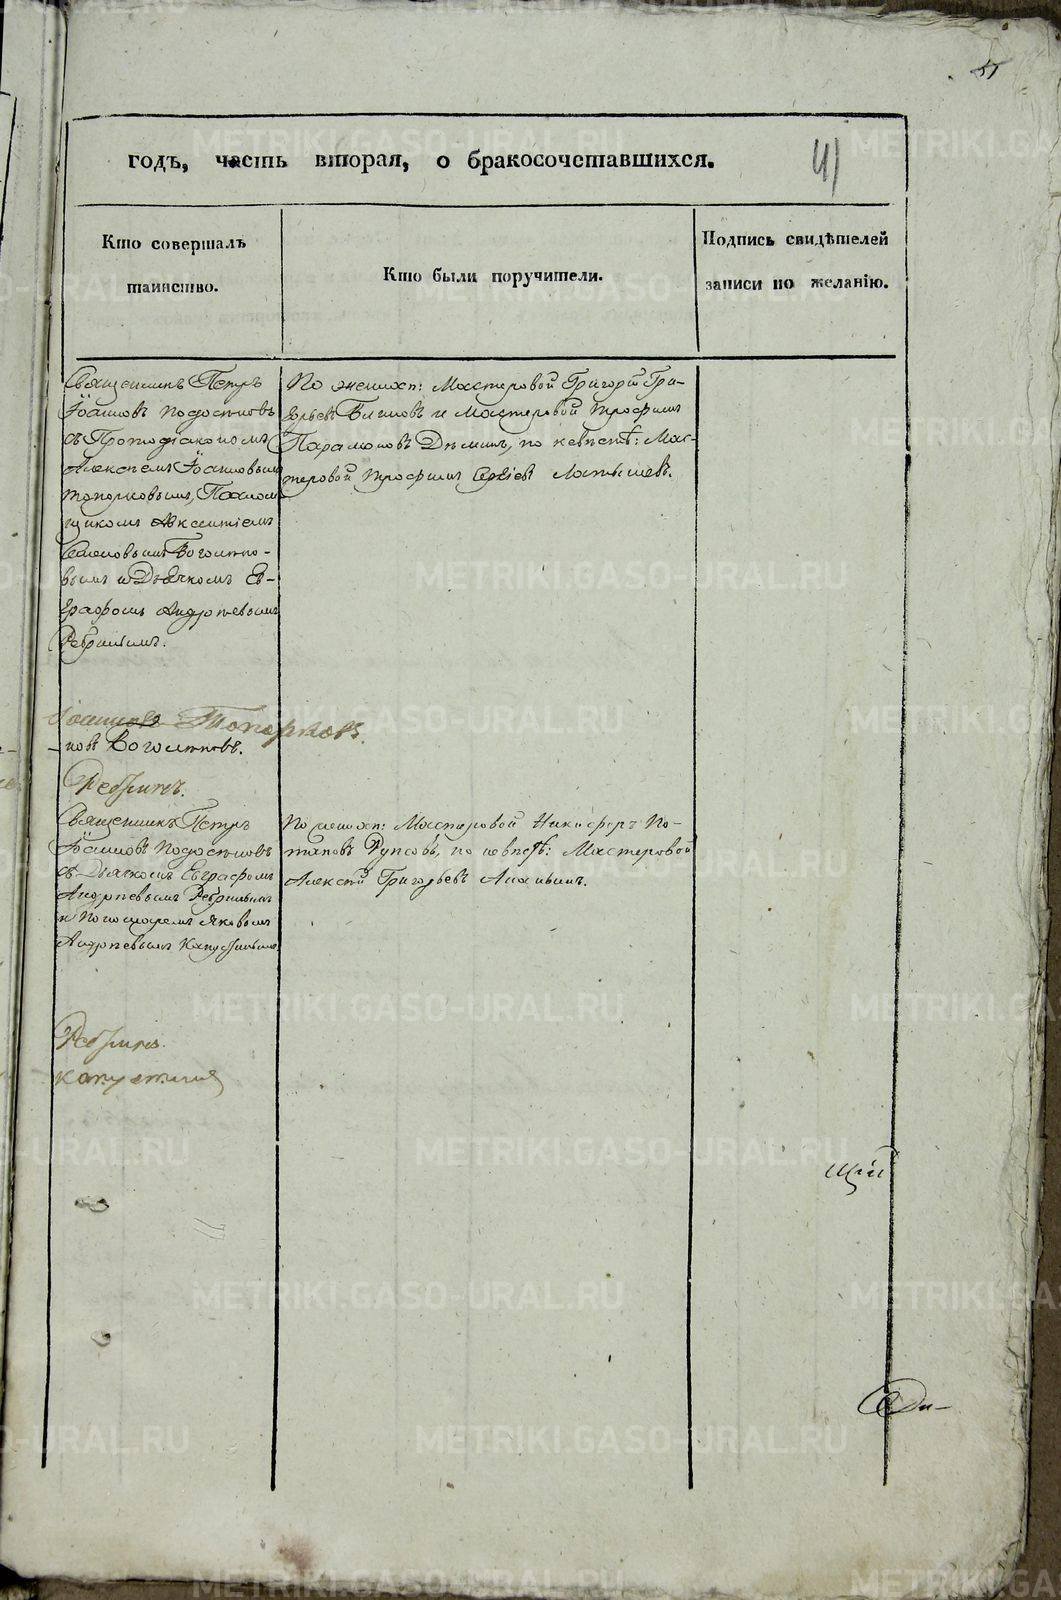 годъ, часть вторая, о бракосочетавшихся.
41
Кто совершалъ
таинство.
Кто были поручители.
Подпись свидѣтелей
записи по желанію.
Священникъ Петръ
Іоанновъ
съ Протодіакономъ
Алексѣемъ Іоанновымъ
Топорковымъ,
Авксентіемъ
Семеновымъ
вымъ и Дьячкомъ Ев-
графомъ Андреевымъ
Ребринымъ.
По женихѣ: Мастеровой Григорій Гри-
горьевъ и Мастеровой Трофимъ
Парамоновъ Деминъ, по невѣстѣ: Мас-
теровой Трофимъ Сергіевъ Латышевъ.
Топорковъ.
Ребринъ.
Священникъ Петръ
Іоанновъ
съ Дьячкомъ Евграфомъ
Андреевымъ Ребринымъ
и Пономаремъ Яковомъ
Андреевымъ Капустинымъ.
По женихѣ: Мастеровой Никифоръ По-
таповъ по невѣстѣ: Мастеровой
Алексѣй Григорьевъ Ананьинъ.
Ребринъ.
Капустинъ
щій
METRIKI.GASO-URAL.RU